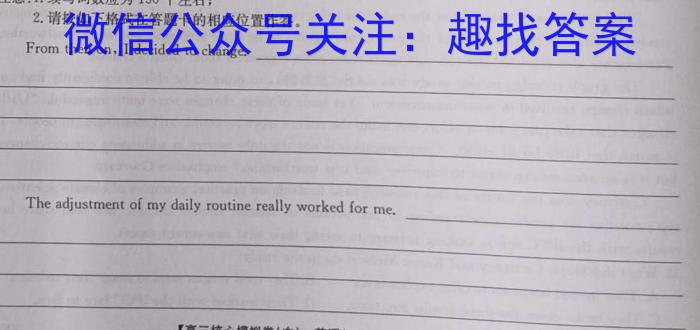 2. 请按如下格式在答题卡的相应位置作答。
微信公众号关注：趣找答案
From then on, I decided to change.
The adjustment of my daily routine really worked for me.